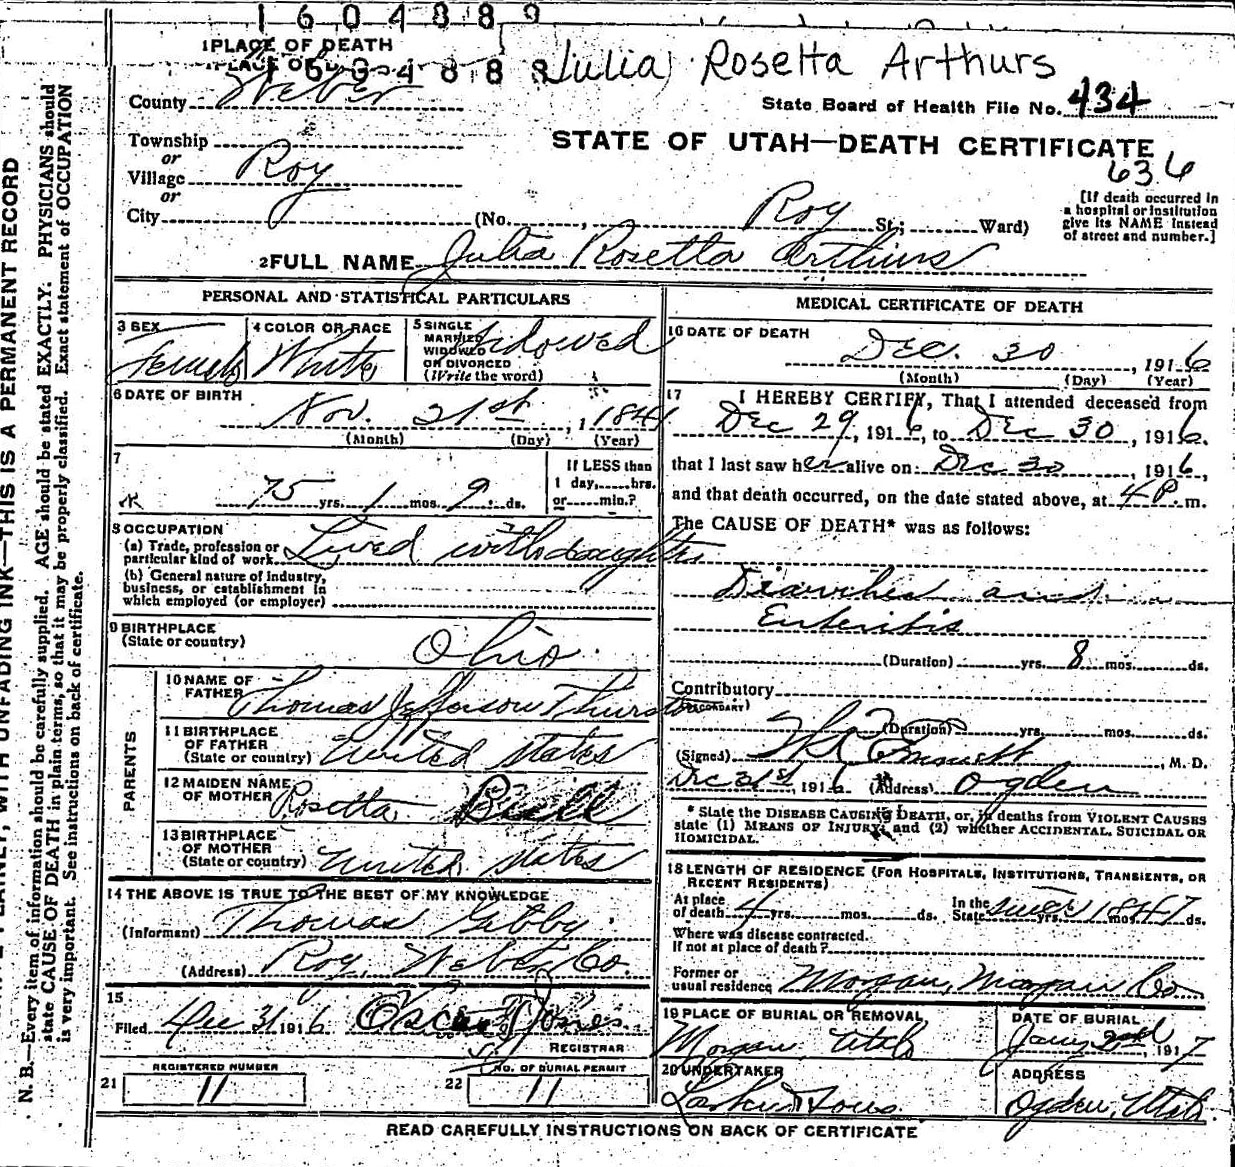 1604889
1 PLACE OF DEATH
1604889 Julia Rosetta Arthurs
County Weber
State Board of Health File No. 434
Township
or
Village Roy
or
City (No. Roy St.; Ward)
STATE OF UTAH—DEATH CERTIFICATE
636
[If death occurred in
a hospital or institution
give its NAME instead
of street and number.]
2 FULL NAME Julia Rosetta Arthurs
PERSONAL AND STATISTICAL PARTICULARS
3 SEX Female
4 COLOR OR RACE White
5 SINGLE
MARRIED
WIDOWED
OR DIVORCED
(Write the word)
Widowed
6 DATE OF BIRTH
Nov. 21st, 1841
(Month) (Day) (Year)
7
75 yrs. 1 mos. 9 ds.
If LESS than
1 day, hrs.
or min.?
8 OCCUPATION
(a) Trade, profession or
particular kind of work Lived with daughter
(b) General nature of industry,
business, or establishment in
which employed (or employer)
9 BIRTHPLACE
(State or country)
Ohio
PARENTS
10 NAME OF
FATHER Thomas Jefferson Thurston
11 BIRTHPLACE
OF FATHER
(State or country) United States
12 MAIDEN NAME
OF MOTHER Rosetta Bull
13 BIRTHPLACE
OF MOTHER
(State or country) United States
14 THE ABOVE IS TRUE TO THE BEST OF MY KNOWLEDGE
(Informant) Thomas Gibby
(Address) Roy, Weber Co.
15
Filed Dec 31 1916 Oscar Jones
REGISTRAR
21 REGISTERED NUMBER
11
22 NO. OF BURIAL PERMIT
11
MEDICAL CERTIFICATE OF DEATH
16 DATE OF DEATH
Dec. 30, 1916
(Month) (Day) (Year)
17 I HEREBY CERTIFY, That I attended deceased from
Dec 29, 1916, to Dec 30, 1916.
that I last saw her alive on Dec 30, 1916,
and that death occurred, on the date stated above, at 4 P. m.
The CAUSE OF DEATH* was as follows:
Diarrhea and
Enteritis
(Duration) yrs. 8 mos. ds.
Contributory
(SECONDARY)
(Duration) yrs. mos. ds.
(Signed) Emmett, M. D.
Dec 31st, 1916 (Address) Ogden
* State the DISEASE CAUSING DEATH, or, in deaths from VIOLENT CAUSES
state (1) MEANS OF INJURY; and (2) whether ACCIDENTAL, SUICIDAL OR
HOMICIDAL.
18 LENGTH OF RESIDENCE (FOR HOSPITALS, INSTITUTIONS, TRANSIENTS, OR
RECENT RESIDENTS)
At place
of death 4 yrs. mos. ds.
In the
State since yrs. 1847 mos. ds.
Where was disease contracted.
If not at place of death?
Former or
usual residence Morgan, Morgan Co
19 PLACE OF BURIAL OR REMOVAL
Morgan, Utah
DATE OF BURIAL
Jany 2nd, 1917
20 UNDERTAKER
Larkin & Sons
ADDRESS
Ogden, Utah
READ CAREFULLY INSTRUCTIONS ON BACK OF CERTIFICATE
WITH UNFADING INK—THIS IS A PERMANENT RECORD
N. B.—Every item of information should be carefully supplied. AGE should be stated EXACTLY. PHYSICIANS should
state CAUSE OF DEATH in plain terms, so that it may be properly classified. Exact statement of OCCUPATION
is very important. See instructions on back of certificate.